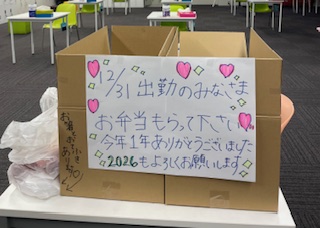 12/31 出勤のみなさま
お弁当もらって下さい
今年1年ありがとうございました
2026もよろしくお願いします
お箸
あります